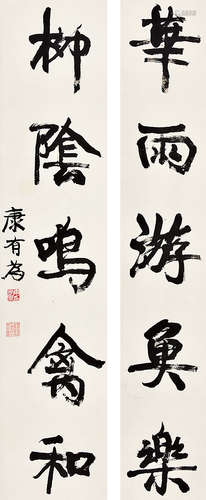 華雨游魚樂
柳陰鳴禽和
康有為